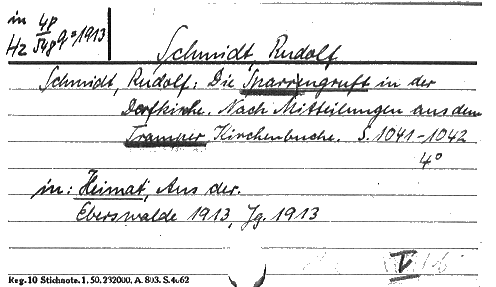 in 4P
Hz 548 q=1913
Schmidt Rudolf
Schmidt, Rudolf: Die Sparrengruft in der
Dorfkirche. Nach Mitteilungen aus dem
Tramper Kirchenbuche. S. 1041-1042
4°
in: Heimat, Aus der.
Eberswalde 1913, Jg. 1913
V
Reg. 10 Stichnote. 1. 50. 232000. A. 803. S. 4662